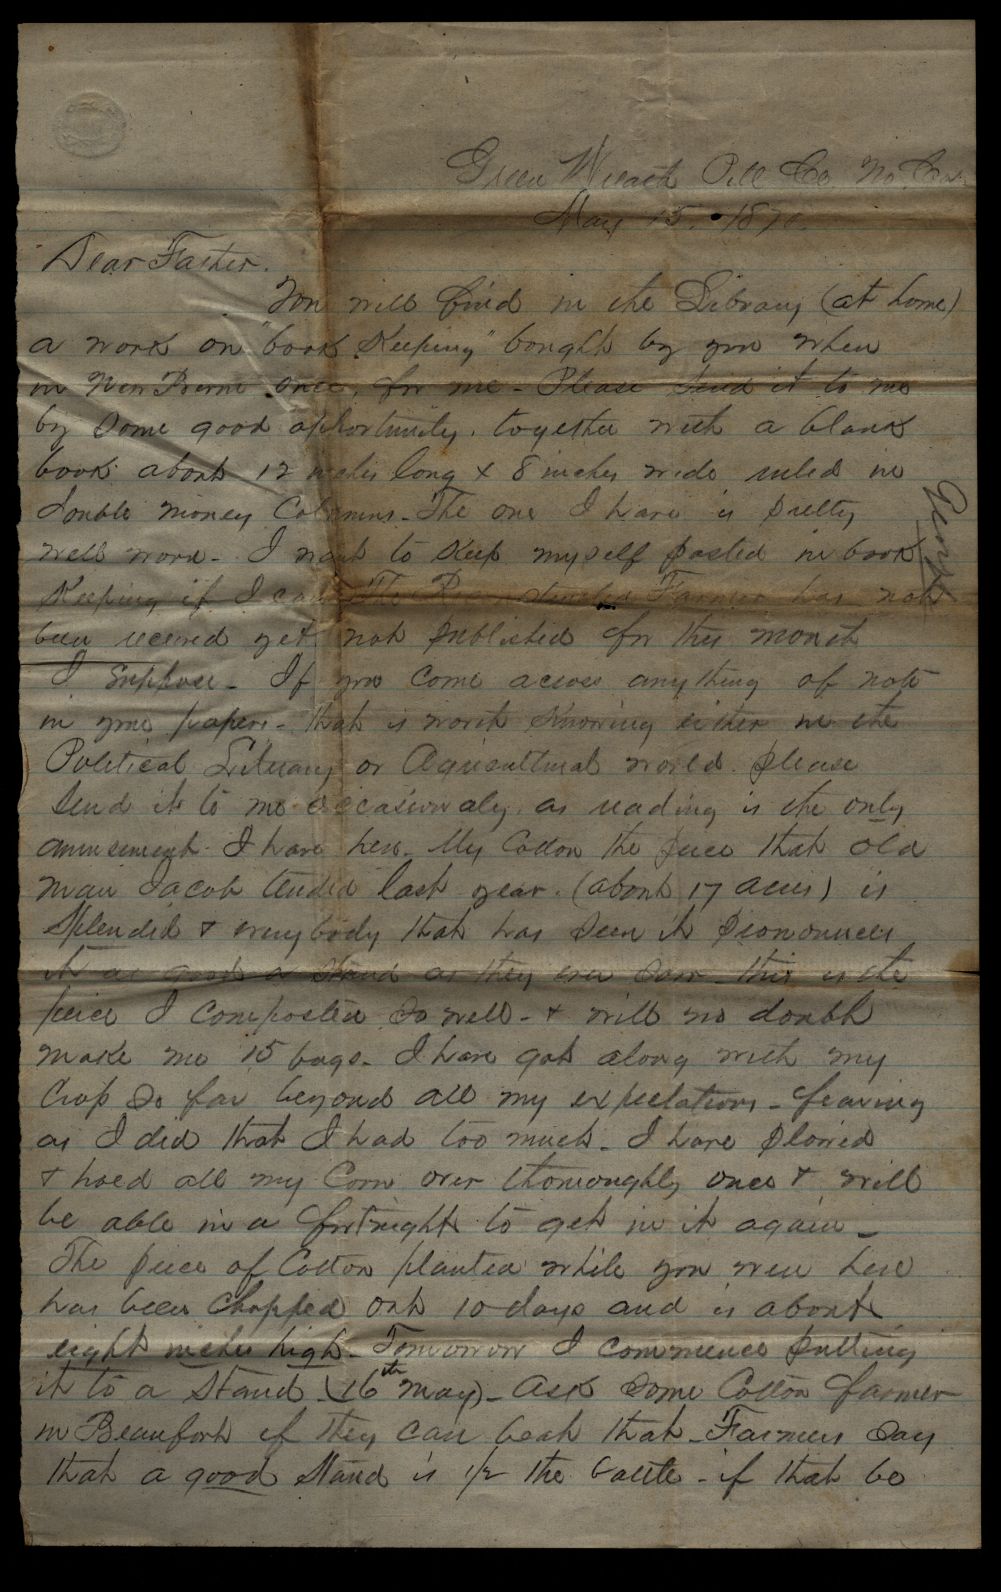 Green Wreath Pitt Co No. Car
May 15. 1870.
Dear Father.
You will find in the Library (at home)
a work on "book Keeping" bought by you when
in New Berne once, for me - Please send it to me
by some good opportunity, together with a blank
book about 12 inches long & 8 inches wide ruled in
double money Columns - The one I have is pretty
well worn - I want to Keep myself posted in book
Keeping if I can The Reconstructed Farmer has not
been received yet not published for this month
I suppose - If you come across anything of note
in your papers - that is worth Knowing either in the
Political Literary or Agricultural world. please
send it to me occasionaly, as reading is the only
amusement I have here. My Cotton the peice that old
man Jacob tended last year. (about 17 acres) is
splendid & everybody that has seen it pronounces
it as good a stand as they ever saw - this is the
peice I composted so well - & will no doubt
make me 15 bags - I have got along with my
Crop so far beyond all my expectations - fearing
as I did that I had too much - I have plowed
& hoed all my Corn over thoroughly once & will
be able in a fortnight to get in it again -
The peice of Cotton planted while you were here
has been Chopped out 10 days and is about
eight inches high - Tomorrow I commence putting
it to a stand (16th May) - ask some Cotton farmer
in Beaufort if they can beat that - Farmers say
that a good stand is 1/2 the battle - if that be